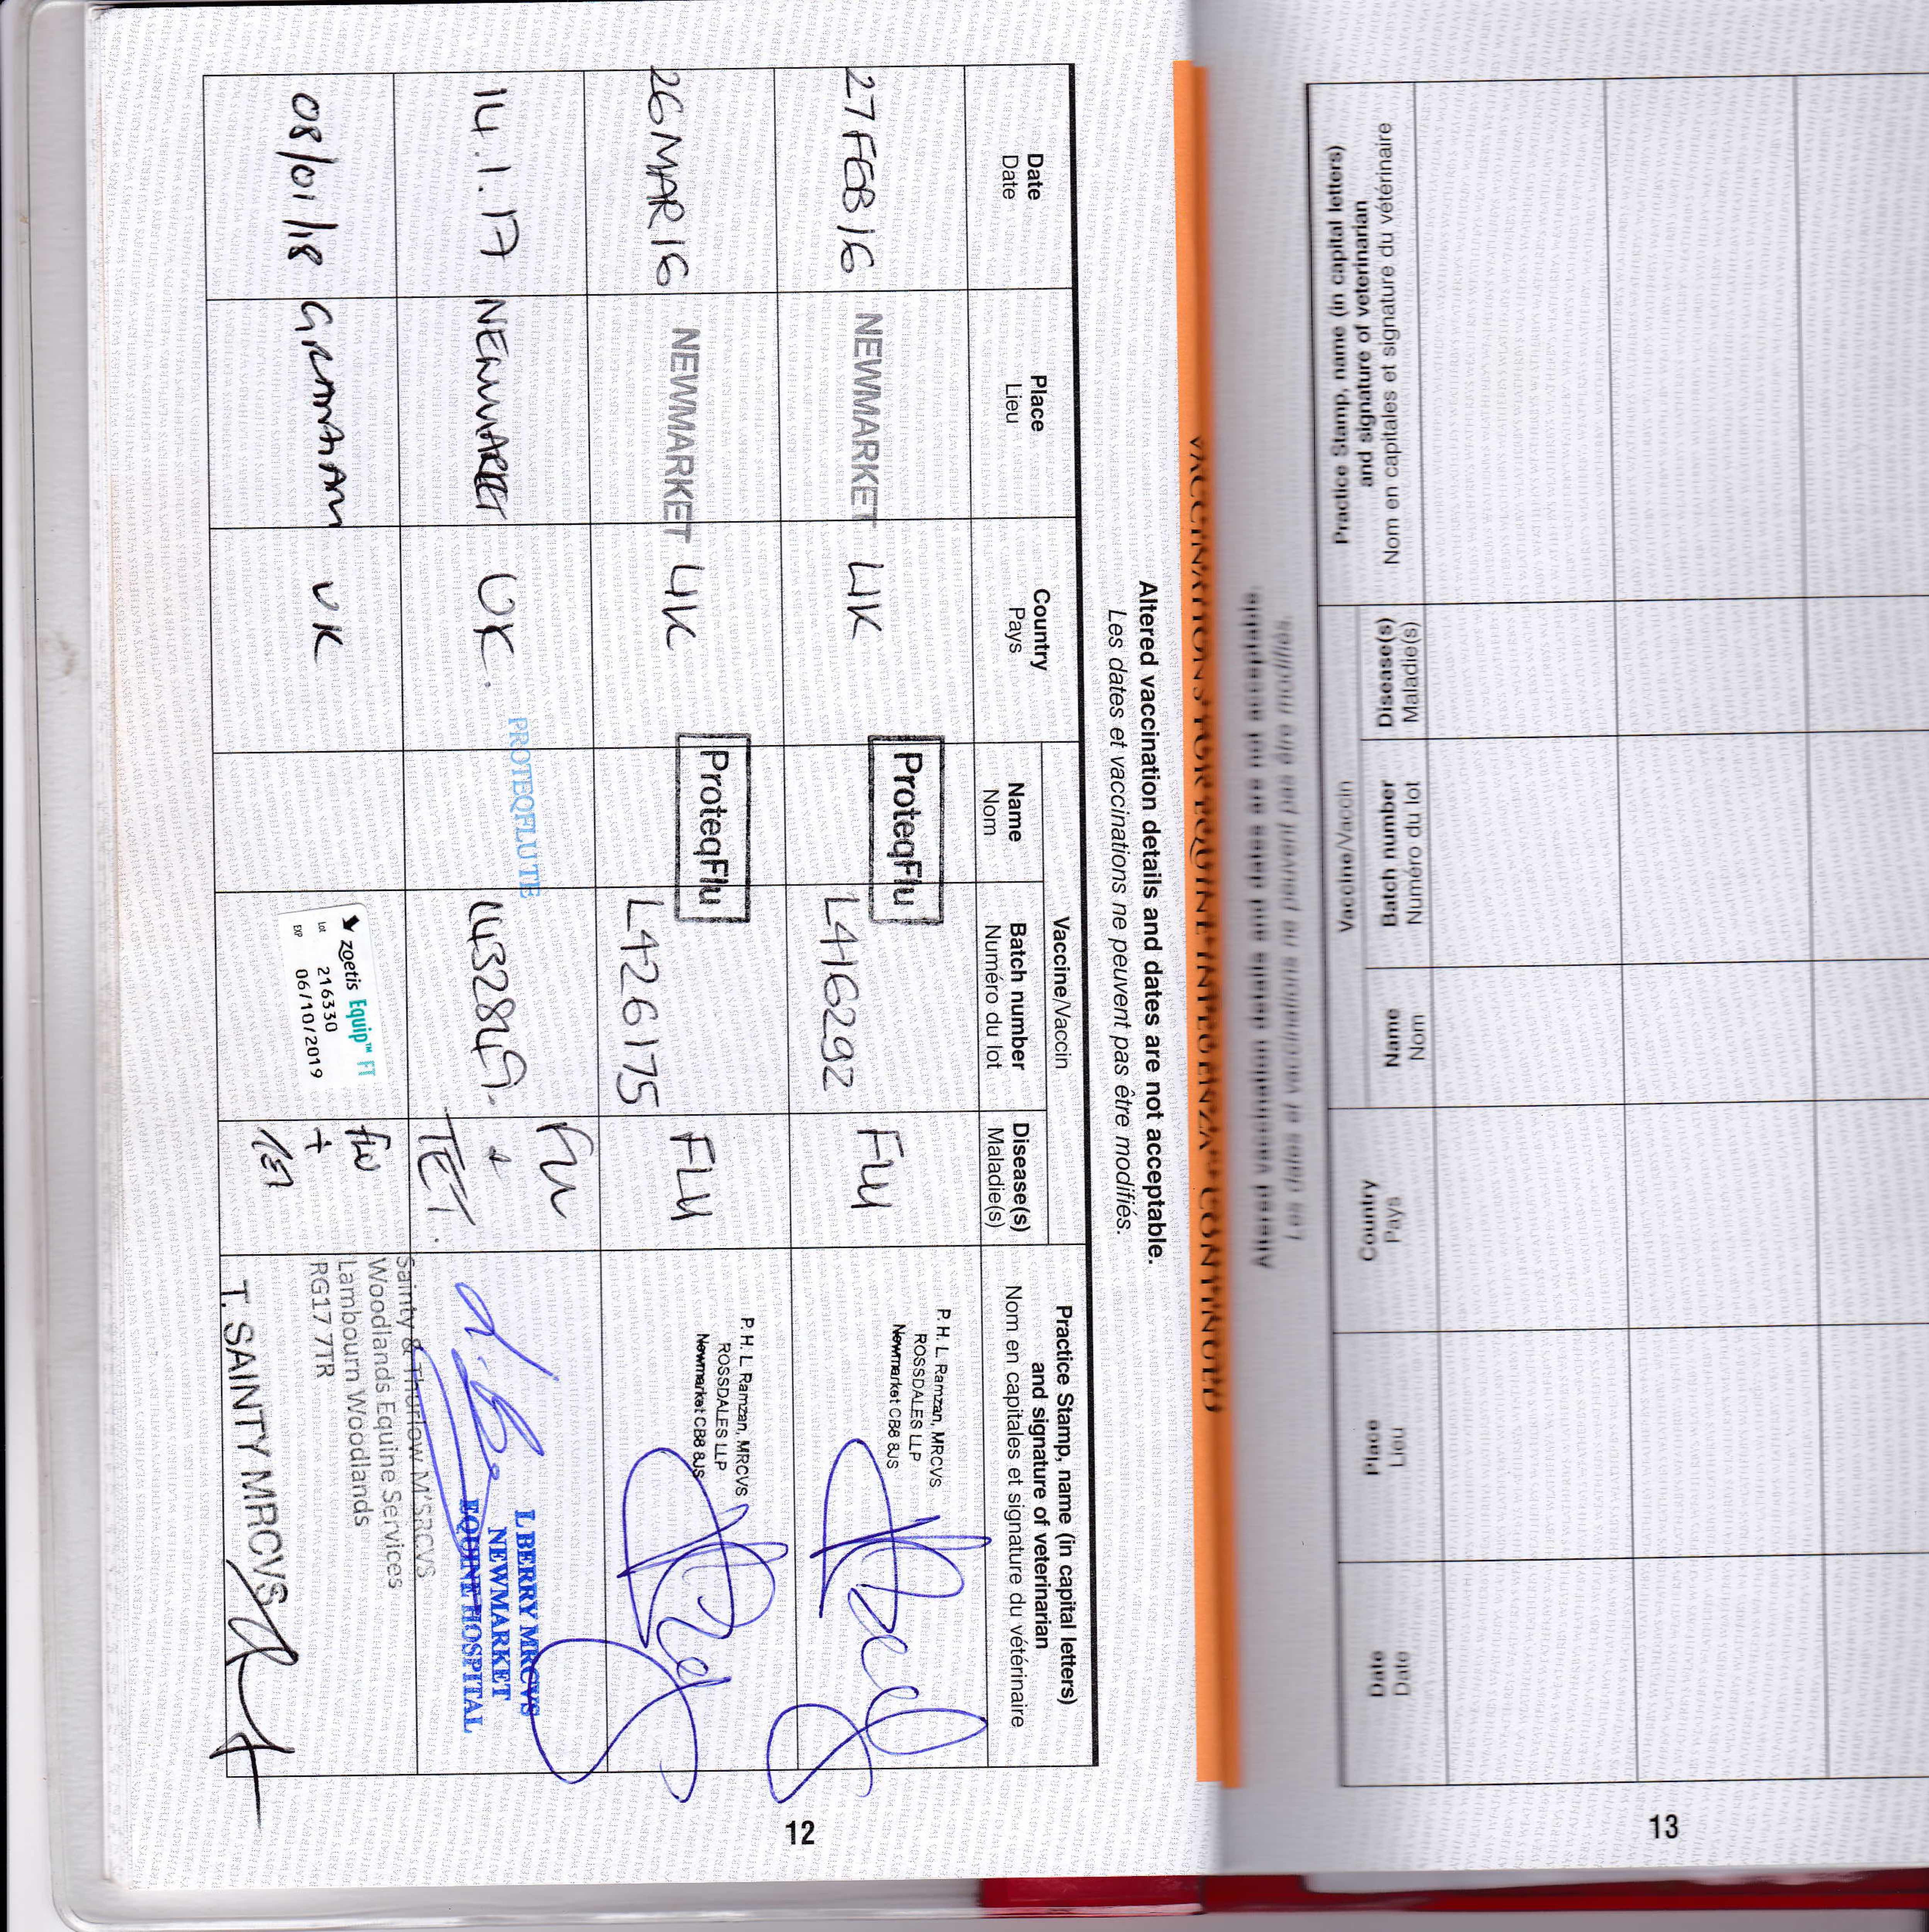 VACCINATIONS FOR EQUINE INFLUENZA CONTINUED
Altered vaccination details and dates are not acceptable.
Les dates et vaccinations ne peuvent pas être modifiés.
Date
Date
Place
Lieu
Country
Pays
Vaccine/Vaccin
Name
Nom
Batch number
Numéro du lot
Disease(s)
Maladie(s)
Practice Stamp, name (in capital letters)
and signature of veterinarian
Nom en capitales et signature du vétérinaire
27 FEB 16
NEWMARKET
UK
ProteqFlu
L416292
FLU
P. H. L. Ramzan, MRCVS
ROSSDALES LLP
Newmarket CB8 8JS
26 MAR 16
NEWMARKET
UK
ProteqFlu
L426175
FLU
P. H. L. Ramzan, MRCVS
ROSSDALES LLP
Newmarket CB8 8JS
14.1.17
NEWMARKET
UK.
PROTEQFLUTE
Flu
&
TET.
L BERRY MRCVS
NEWMARKET
EQUINE HOSPITAL
08/01/18
UK
zoetis Equip™ FT
Lot 216330
EXP 06/10/2019
flu
+
tet
Sainty & Thurlow M'SRCVS
Woodlands Equine Services
Lambourn Woodlands
RG17 7TR
T. SAINTY MRCVS
12
Altered vaccination details and dates are not acceptable
Les dates et vaccinations ne peuvent pas être modifiés.
Date
Date
Place
Lieu
Country
Pays
Vaccine/Vaccin
Name
Nom
Batch number
Numéro du lot
Disease(s)
Maladie(s)
Practice Stamp, name (in capital letters)
and signature of veterinarian
Nom en capitales et signature du vétérinaire
13